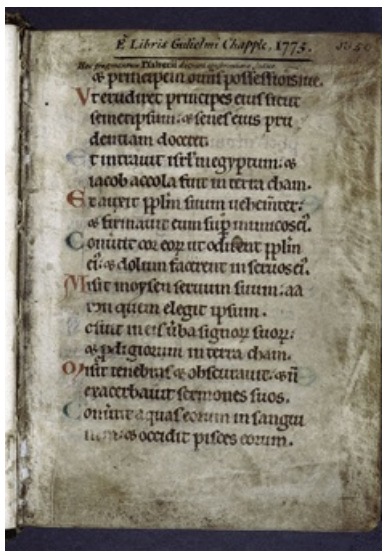 E Libris Gulielmi Chapple, 1775.
Hoc fragmentum Psalterii
& principem omnis possessionis sue.
Vt erudiret principes eius sicut
semetipsum: & senes eius pru
dentiam doceret.
Et intrauit isrl in egyptum: &
iacob accola fuit in terra cham.
Et auxit pplm suum uehemter:
& firmauit eum sup inimicos ei.
Conuertit cor eor ut odirent pplm
ei: & dolum facerent in seruos ei.
Misit moysen seruum suum: aa
ron quem elegit ipsum.
in eis uba signor suor:
& pdigiorum in terra cham.
Misit tenebras & obscurauit: & n
exacerbauit sermones suos.
Conuertit aquas eorum in sangui
nem: & occidit pisces eorum.